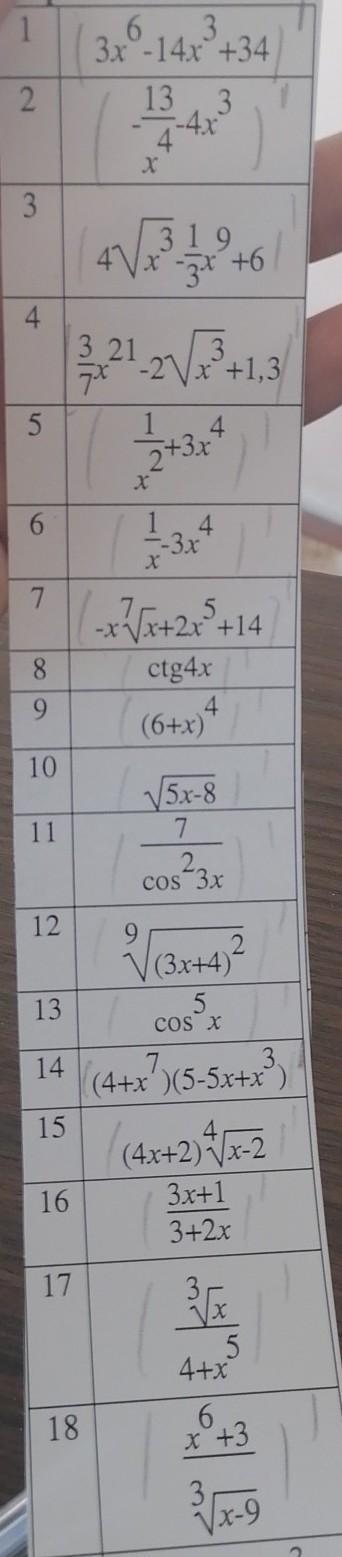 1 ( 3x⁶-14x³+34 )'
2 ( -13/x⁴-4x³ )'
3 ( 4√x³-1/3x⁹+6 )'
4 3/7x²¹-2√x³+1,3
5 ( 1/x²+3x⁴ )'
6 ( 1/x-3x⁴ )'
7 ( -x⁷√x+2x⁵+14 )'
8 ctg4x
9 (6+x)⁴
10 ( √5x-8 )'
11 ( 7/cos²3x )'
12 ( ⁹√(3x+4)² )'
13 ( cos⁵x )'
14 ((4+x⁷)(5-5x+x³))'
15 ( (4x+2)⁴√x-2 )'
16 ( 3x+1/3+2x )'
17 ( ³√x/4+x⁵ )'
18 ( x⁶+3/³√x-9 )'